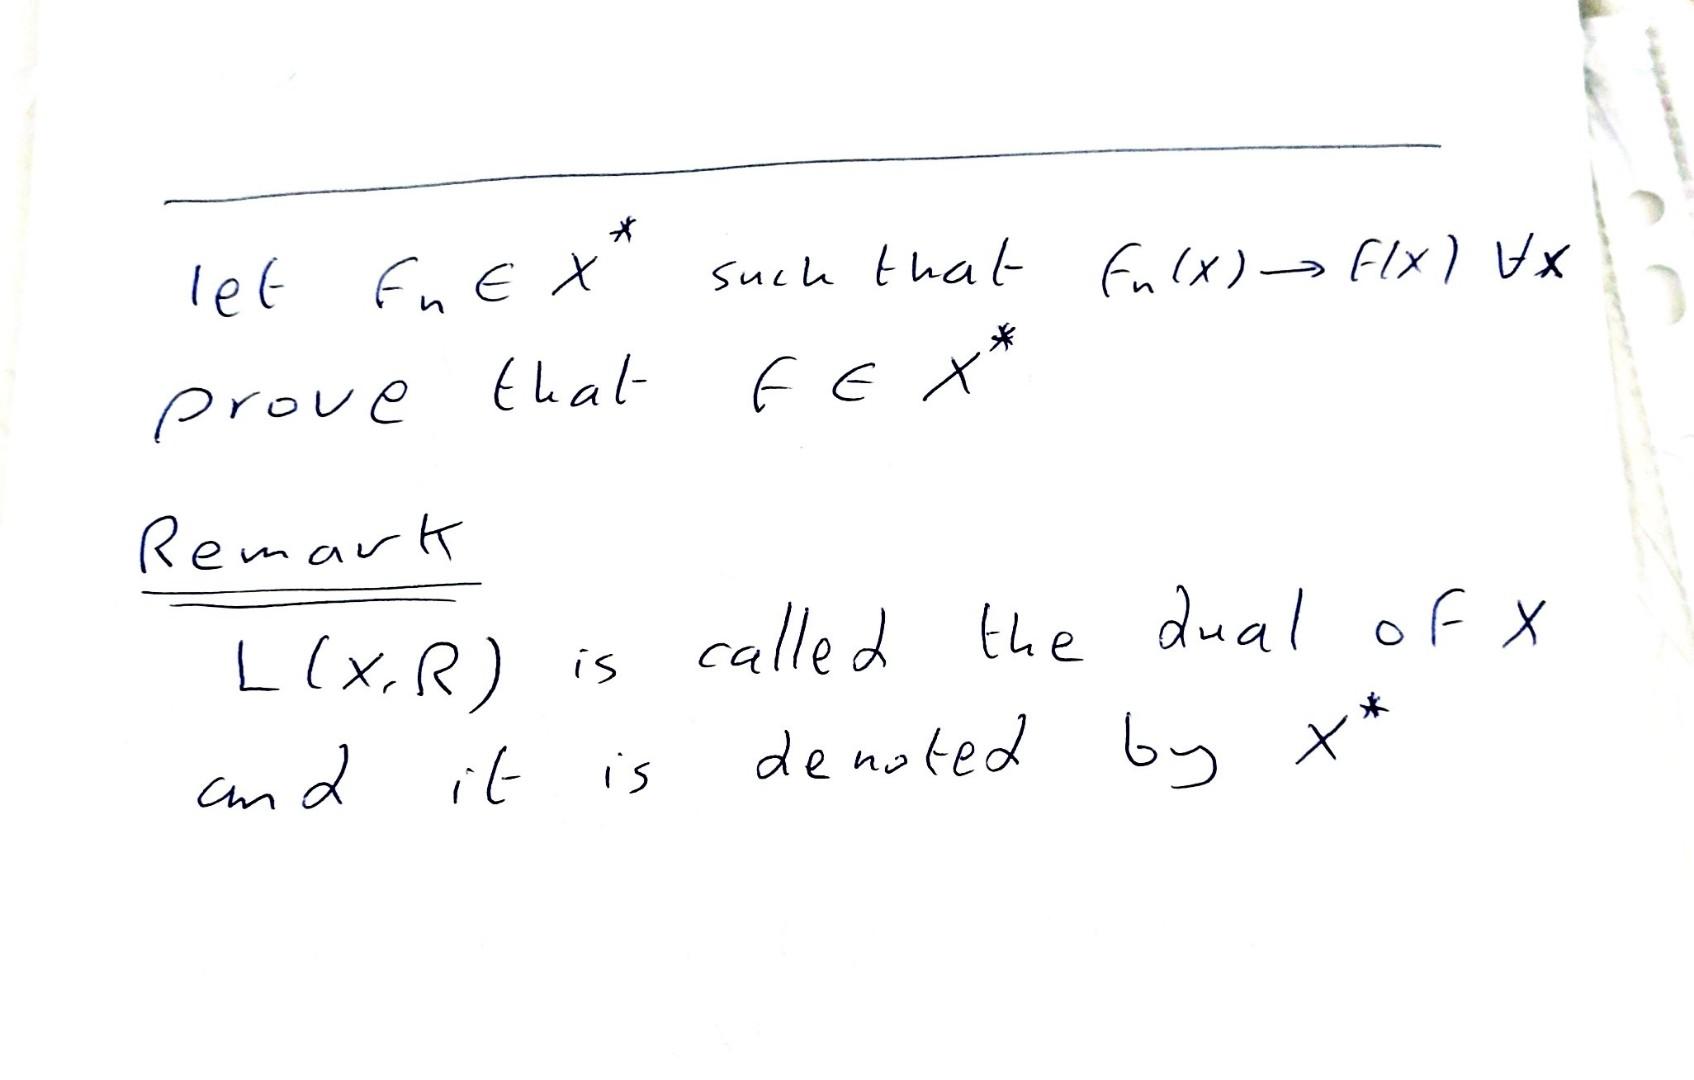 let fn ∈ X* such that fn(x) → f(x) ∀x
prove that f ∈ X*
Remark
L(X,R) is called the dual of X
and it is denoted by X*